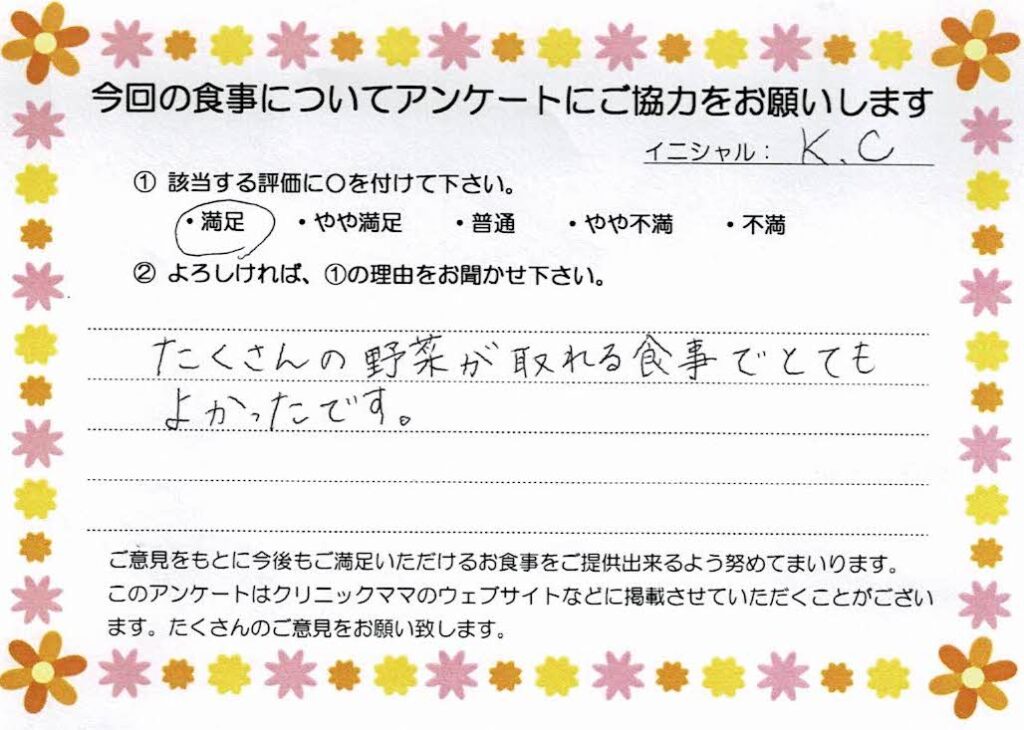 今回の食事についてアンケートにご協力をお願いします
イニシャル： K.C
① 該当する評価に〇を付けて下さい。
・満足 ・やや満足 ・普通 ・やや不満 ・不満
② よろしければ、①の理由をお聞かせ下さい。
たくさんの野菜が取れる食事でとても
よかったです。
ご意見をもとに今後もご満足いただけるお食事をご提供出来るよう努めてまいります。
このアンケートはクリニックママのウェブサイトなどに掲載させていただくことがござい
ます。たくさんのご意見をお願い致します。